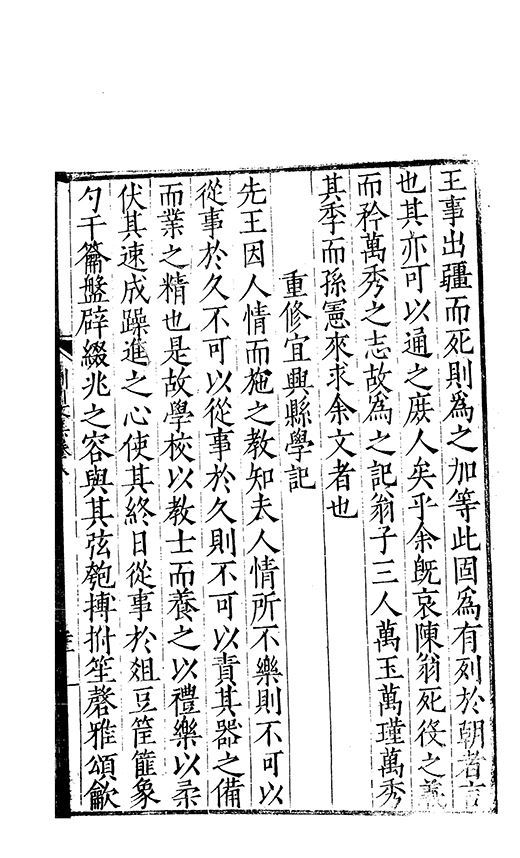 王事出疆而死則爲之加等此固爲有列於朝者言
也其亦可以通之庶人矣乎余旣哀陳翁死役之義
而矜萬秀之志故爲之記翁子三人萬玉萬瑾萬秀
其季而孫憲來求余文者也
重修宜興縣學記
先王因人情而施之教知夫人情所不樂則不可以
從事於久不可以從事於久則不可以責其器之備
而業之精也是故學校以教士而養之以禮樂以柔
伏其速成躁進之心使其終日從事於俎豆筐篚象
勺干籥盤辟綴兆之容與其弦匏搏拊笙磬雅頌龡